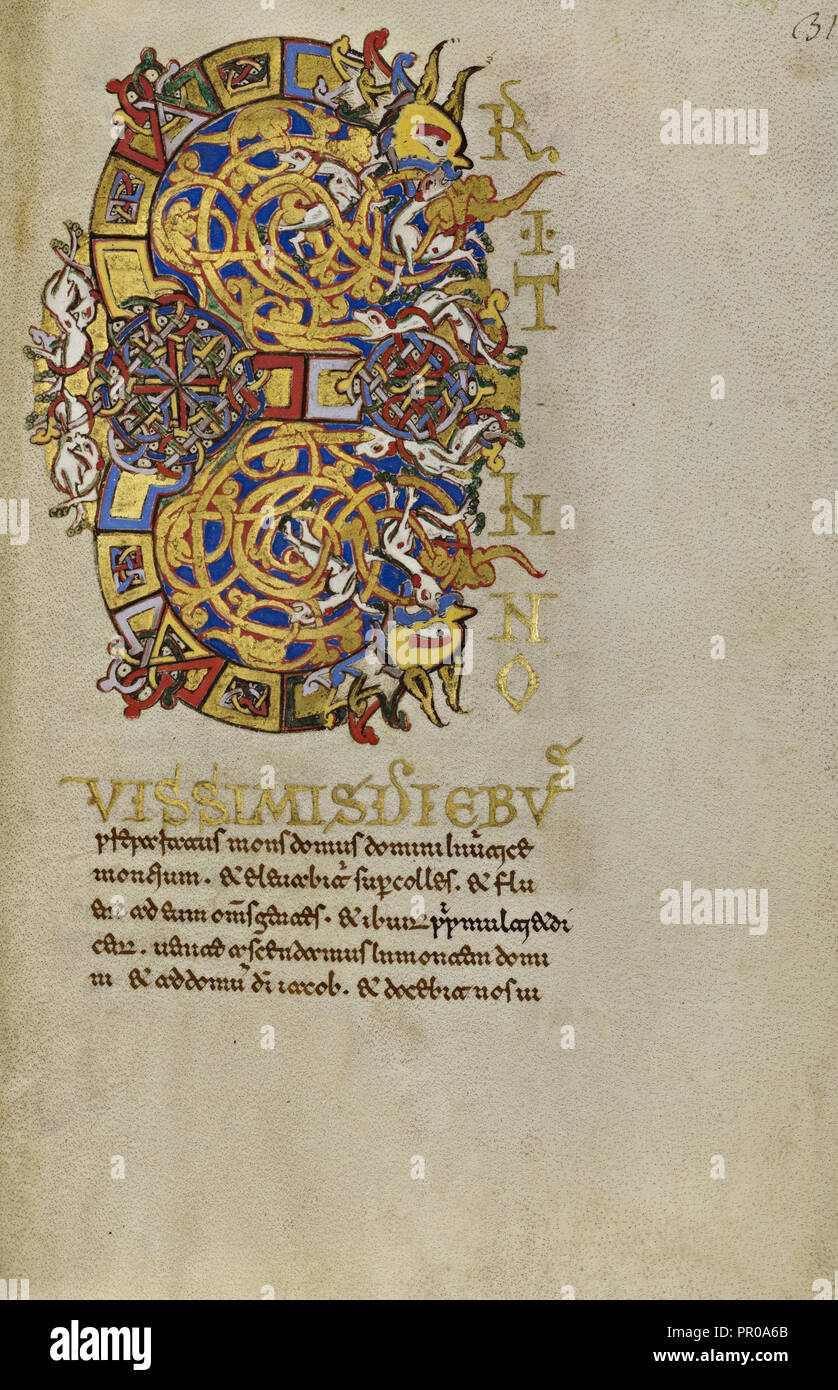 31
E
R
I
T
IN
N
O
VISSIMIS DIEBVS
preparatus mons domus domini in uertice
montium. & eleuabit̃ sup colles. & flu
ent ad eum om̃s gentes. & ibunt pp̃li multi & di
cent. uenite ascendamus in montem domi
ni & ad domũ dĩ iacob. & docebit nos ui
alamy
Image ID: PR0A6B
www.alamy.com